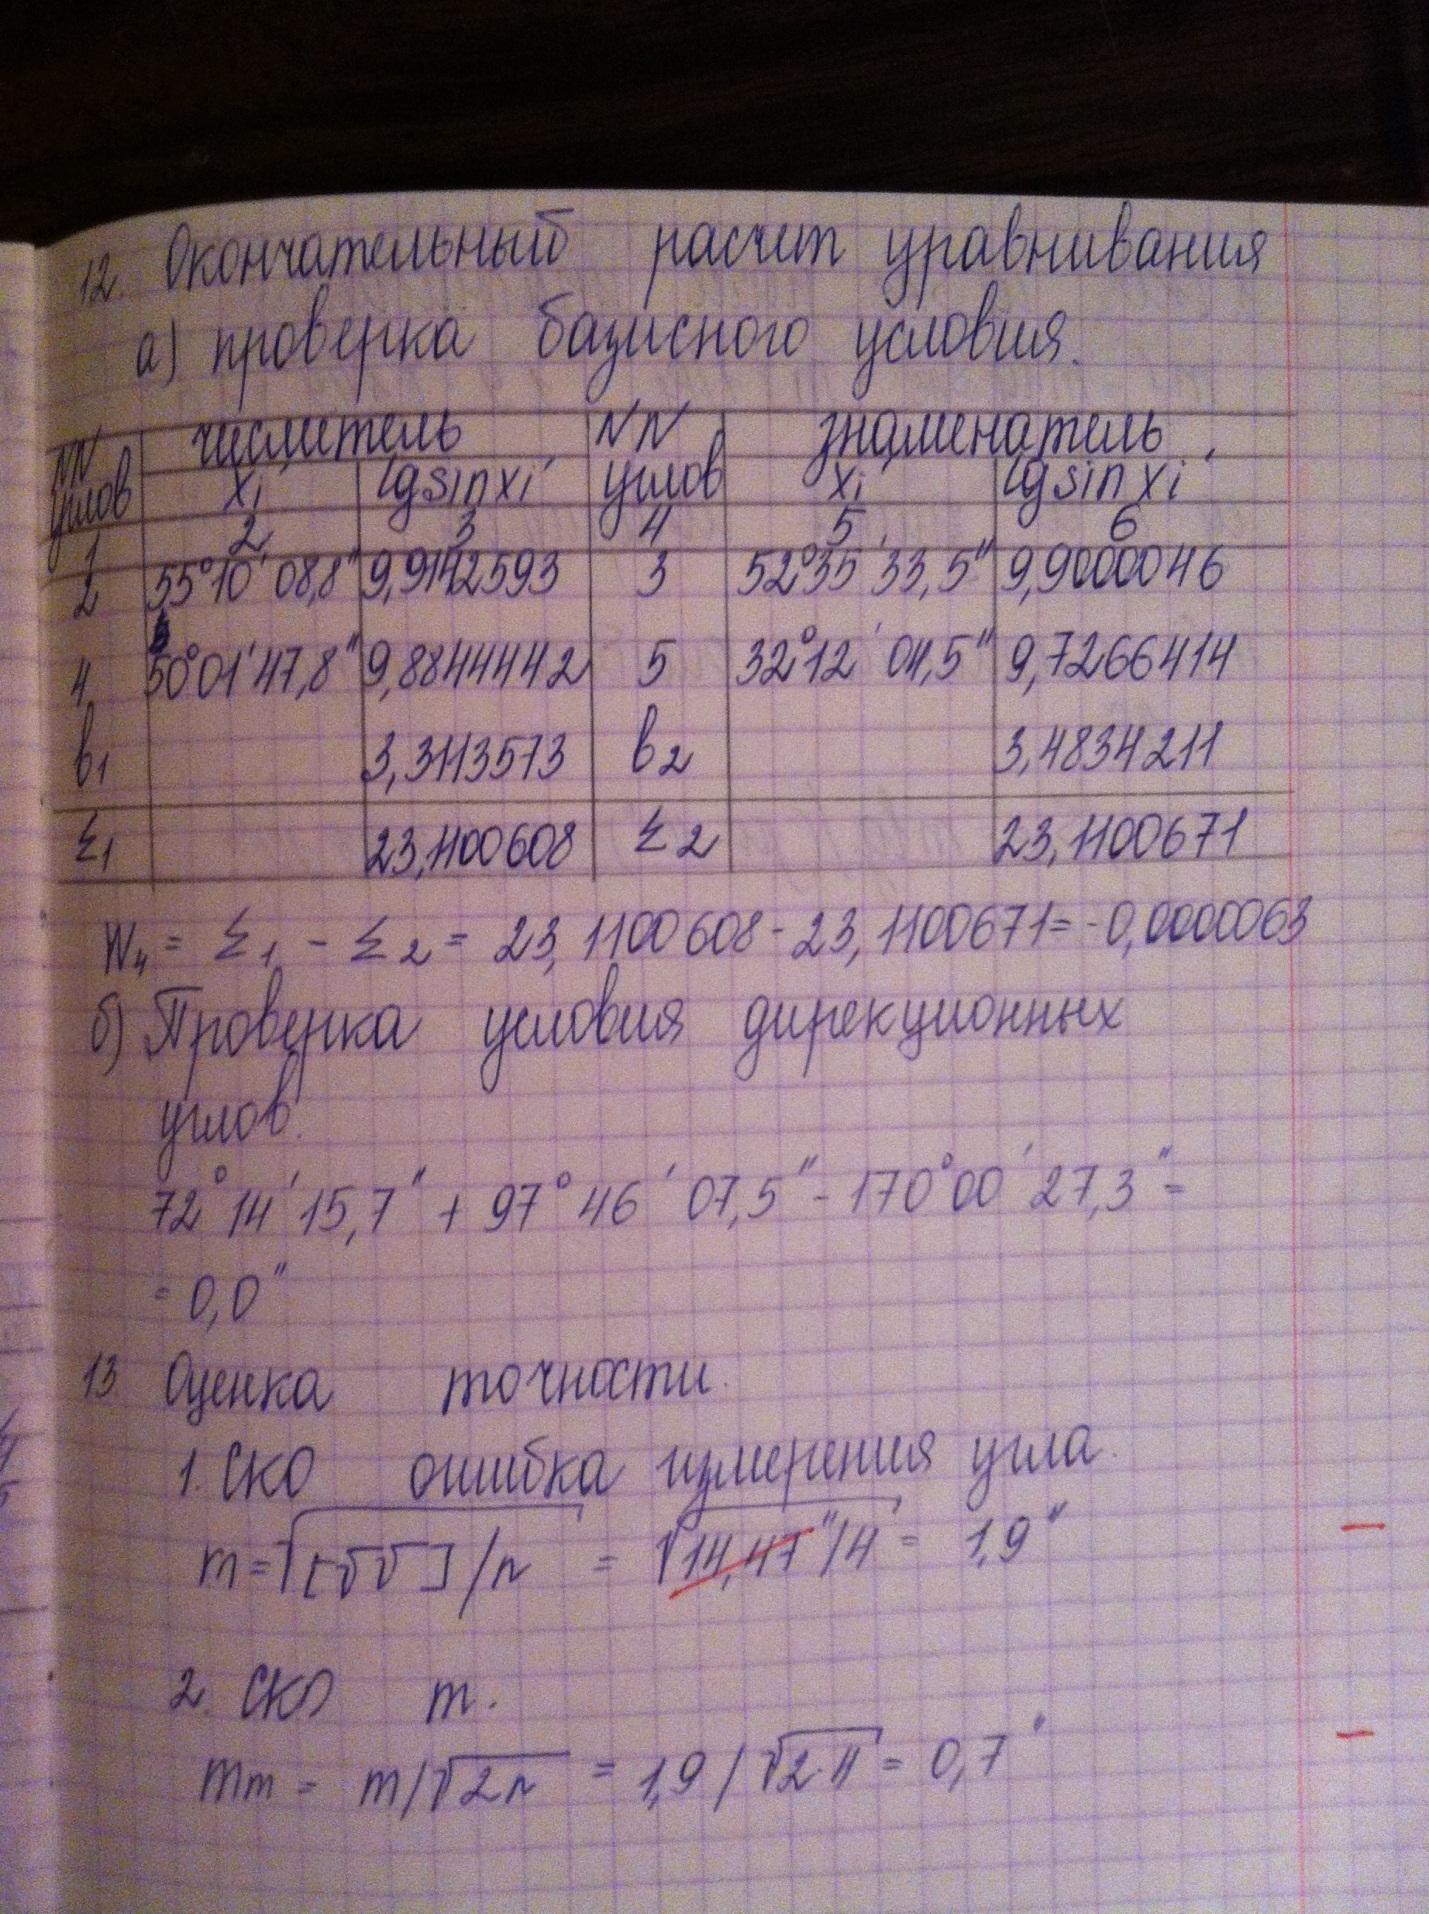 12. Окончательный расчит уравнивания
а) проверка базисного условия.
NN углов числитель NN углов знаменатель
xi lg sin xi xi lg sin xi
1 2 3 4 5 6
2 55°10'08,8" 9,9142593 3 52°35'33,5" 9,9000046
4 50°01'47,8" 9,8844442 5 32°12'04,5" 9,7266414
b1 3,3113573 b2 3,4834211
Σ1 23,1100608 Σ2 23,1100671
W4 = Σ1 - Σ2 = 23,1100608 - 23,1100671 = -0,0000063
б) Проверка условия дирекционных
углов.
72°14'15,7" + 97°46'07,5" - 170°00'27,3" =
= 0,0"
13. Оценка точности.
1. СКО ошибка измерения угла.
m = √[vv]/n = √14,47"/4 = 1,9"
2. СКО m.
mm = m/√2n = 1,9/√2·4 = 0,7"